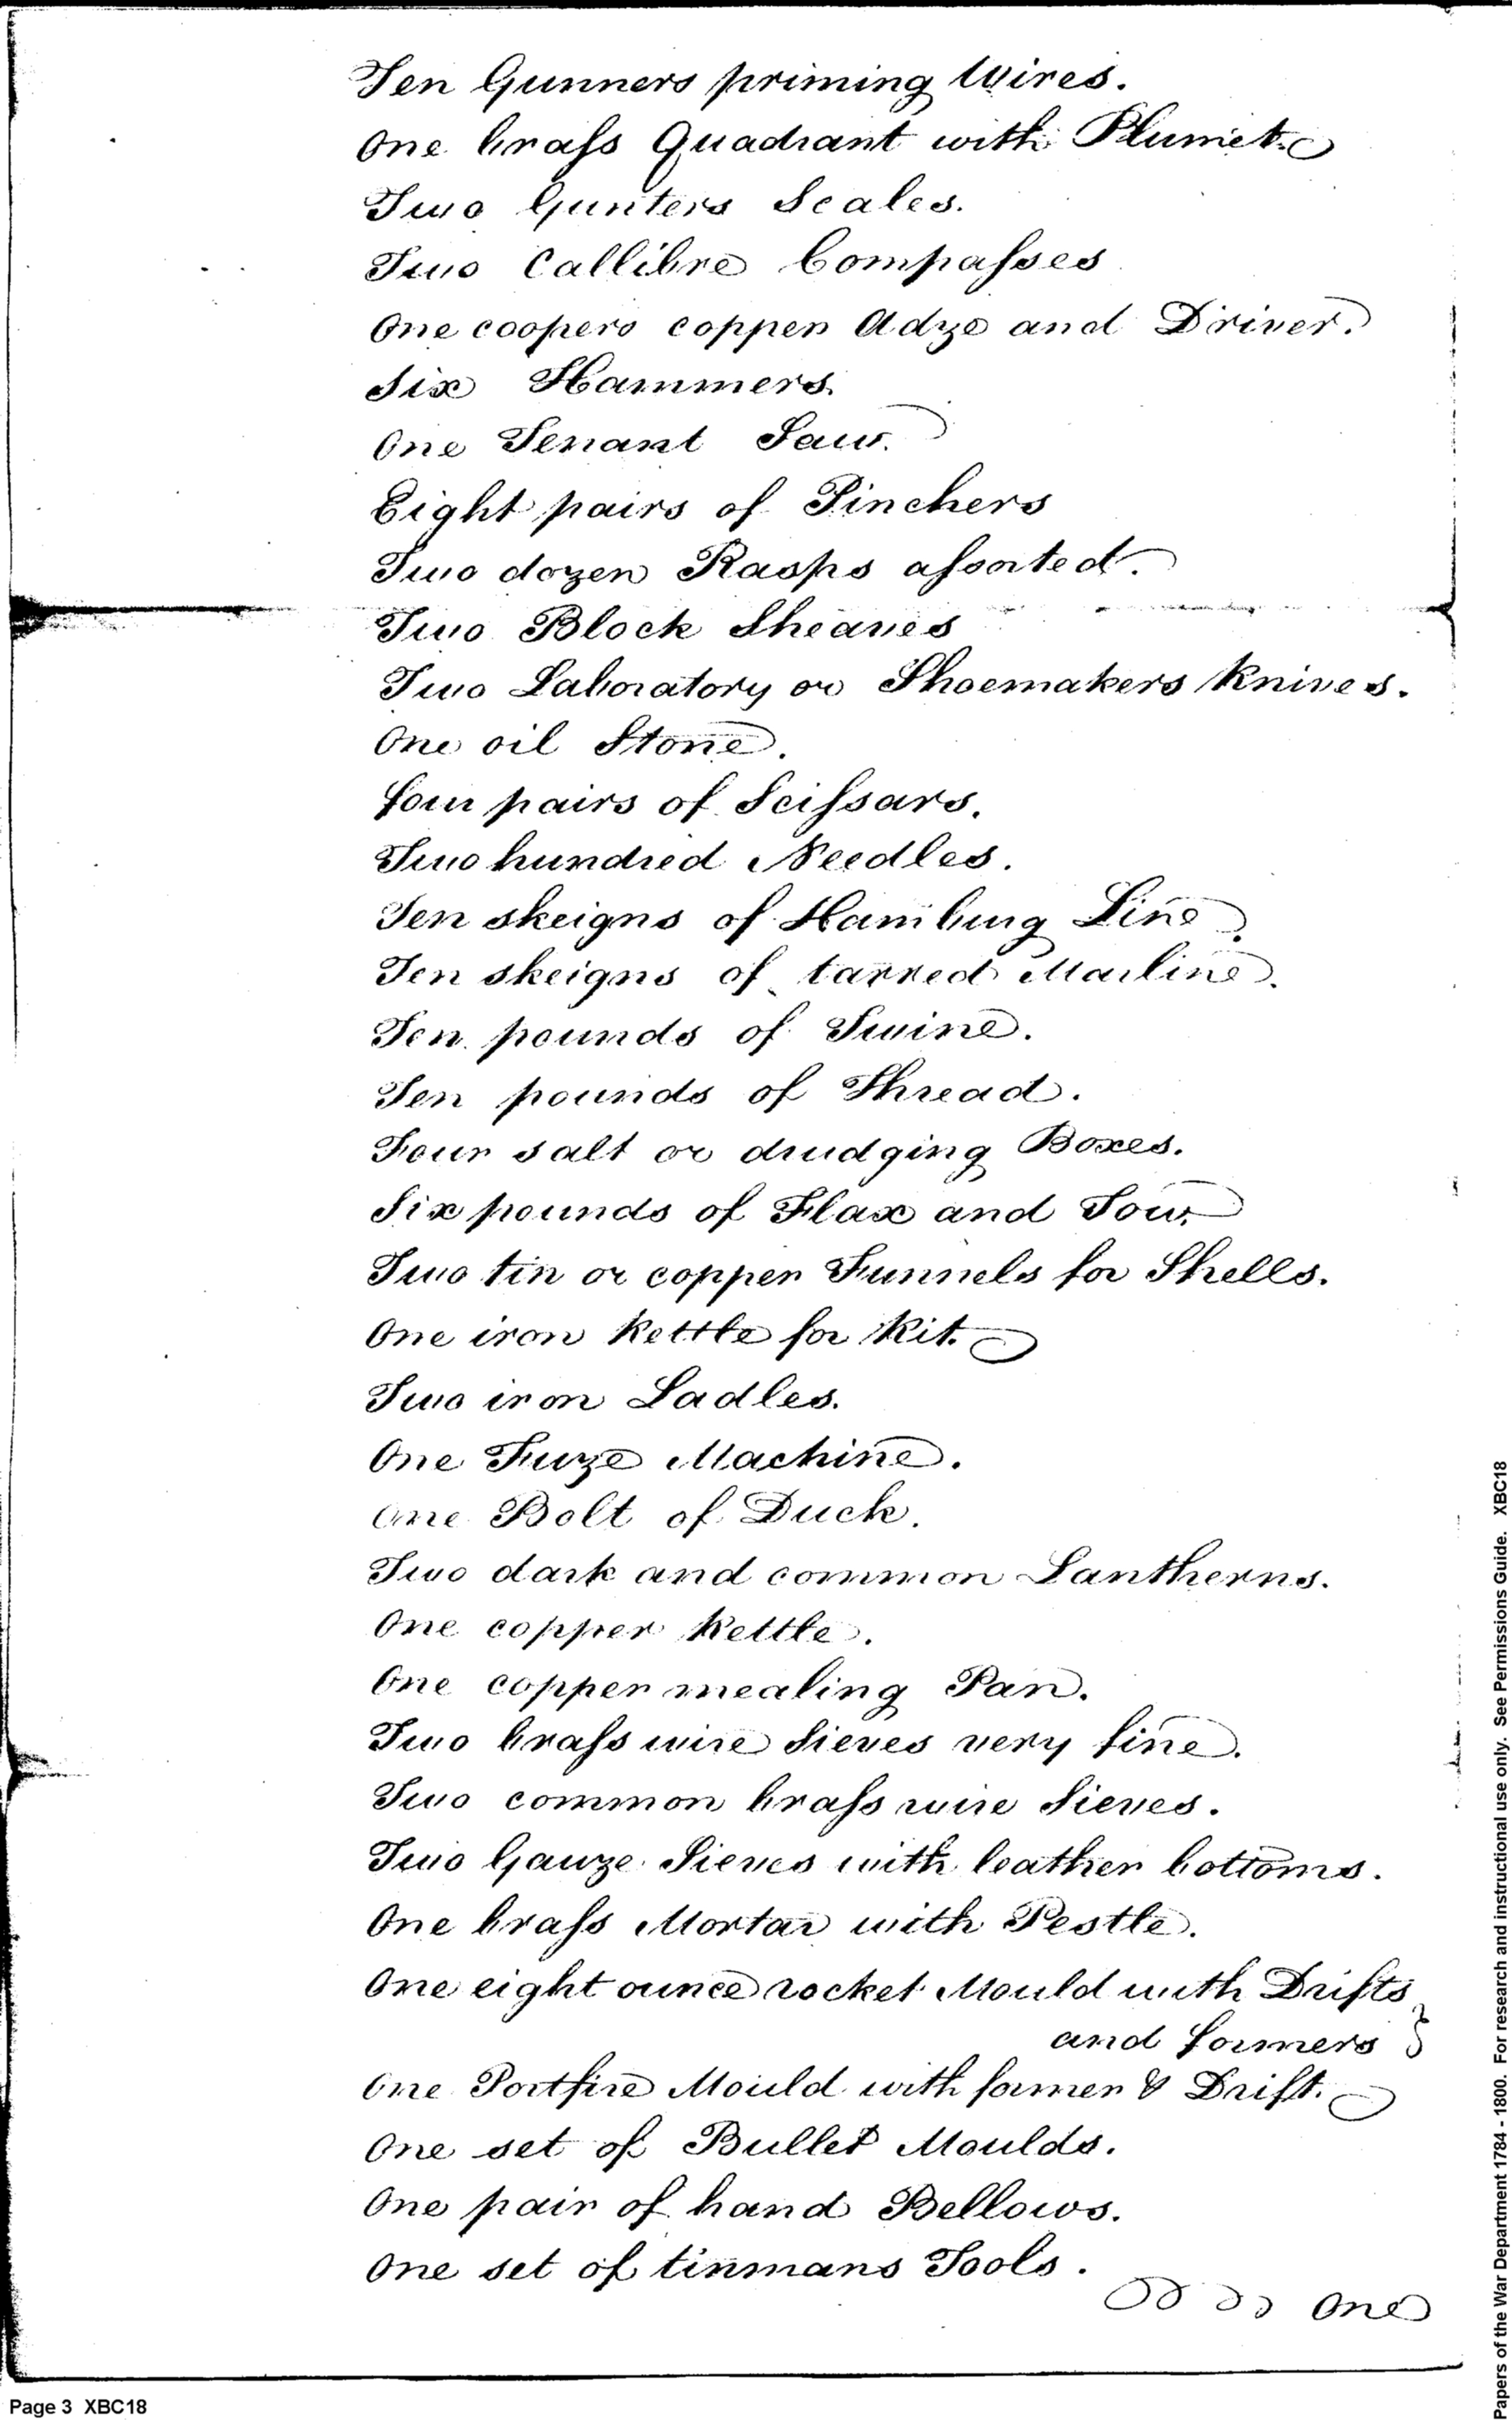 Ten Gunners priming Wires.
One braſs Quadrant with Plumet.
Two Gunters Scales.
Two Callibre Compaſses
One coopers copper Adze and Driver.
Six Hammers.
One Tenant Saw.
Eight pairs of Pinchers
Two dozen Rasps aſsorted.
Two Block Sheaves
Two Laboratory or Shoemakers Knives.
One oil Stone.
four pairs of Sciſsars.
Two hundred Needles.
Ten skeigns of Hamburg Line.
Ten skeigns of tarred Marline.
Ten pounds of Twine.
Ten pounds of Thread.
Four salt or drudging Boxes.
Six pounds of Flax and Tow.
Two tin or copper Funnels for Shells.
One iron Kettle for Kit.
Two iron Ladles.
One Fuze Machine.
One Bolt of Duck.
Two dark and common Lantherns.
One copper Kettle.
One copper mealing Pan.
Two braſs wire Sieves very fine.
Two common braſs wire Sieves.
Two Gauze Sieves with leather bottoms.
One braſs Mortar with Pestle.
One eight ounce rocket Mould with Drifts
and formers }
One Portfire Mould with former & Drift.
One set of Bullet Moulds.
One pair of hand Bellows.
One set of tinmans Tools.
One
Page 3 XBC18
Papers of the War Department 1784 - 1800. For research and instructional use only. See Permissions Guide. XBC18